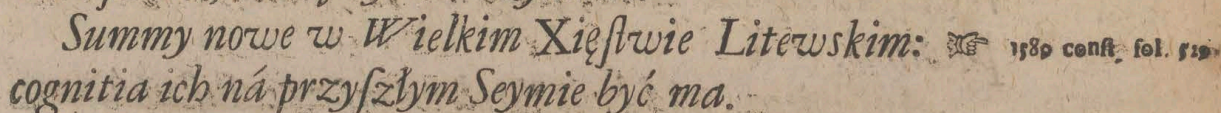 Summy nowe w Wielkim Xięſtwie Litewskim: ☞ 1589 conſt. fol. 529
cognitia ich ná przyſzłym Seymie być ma.